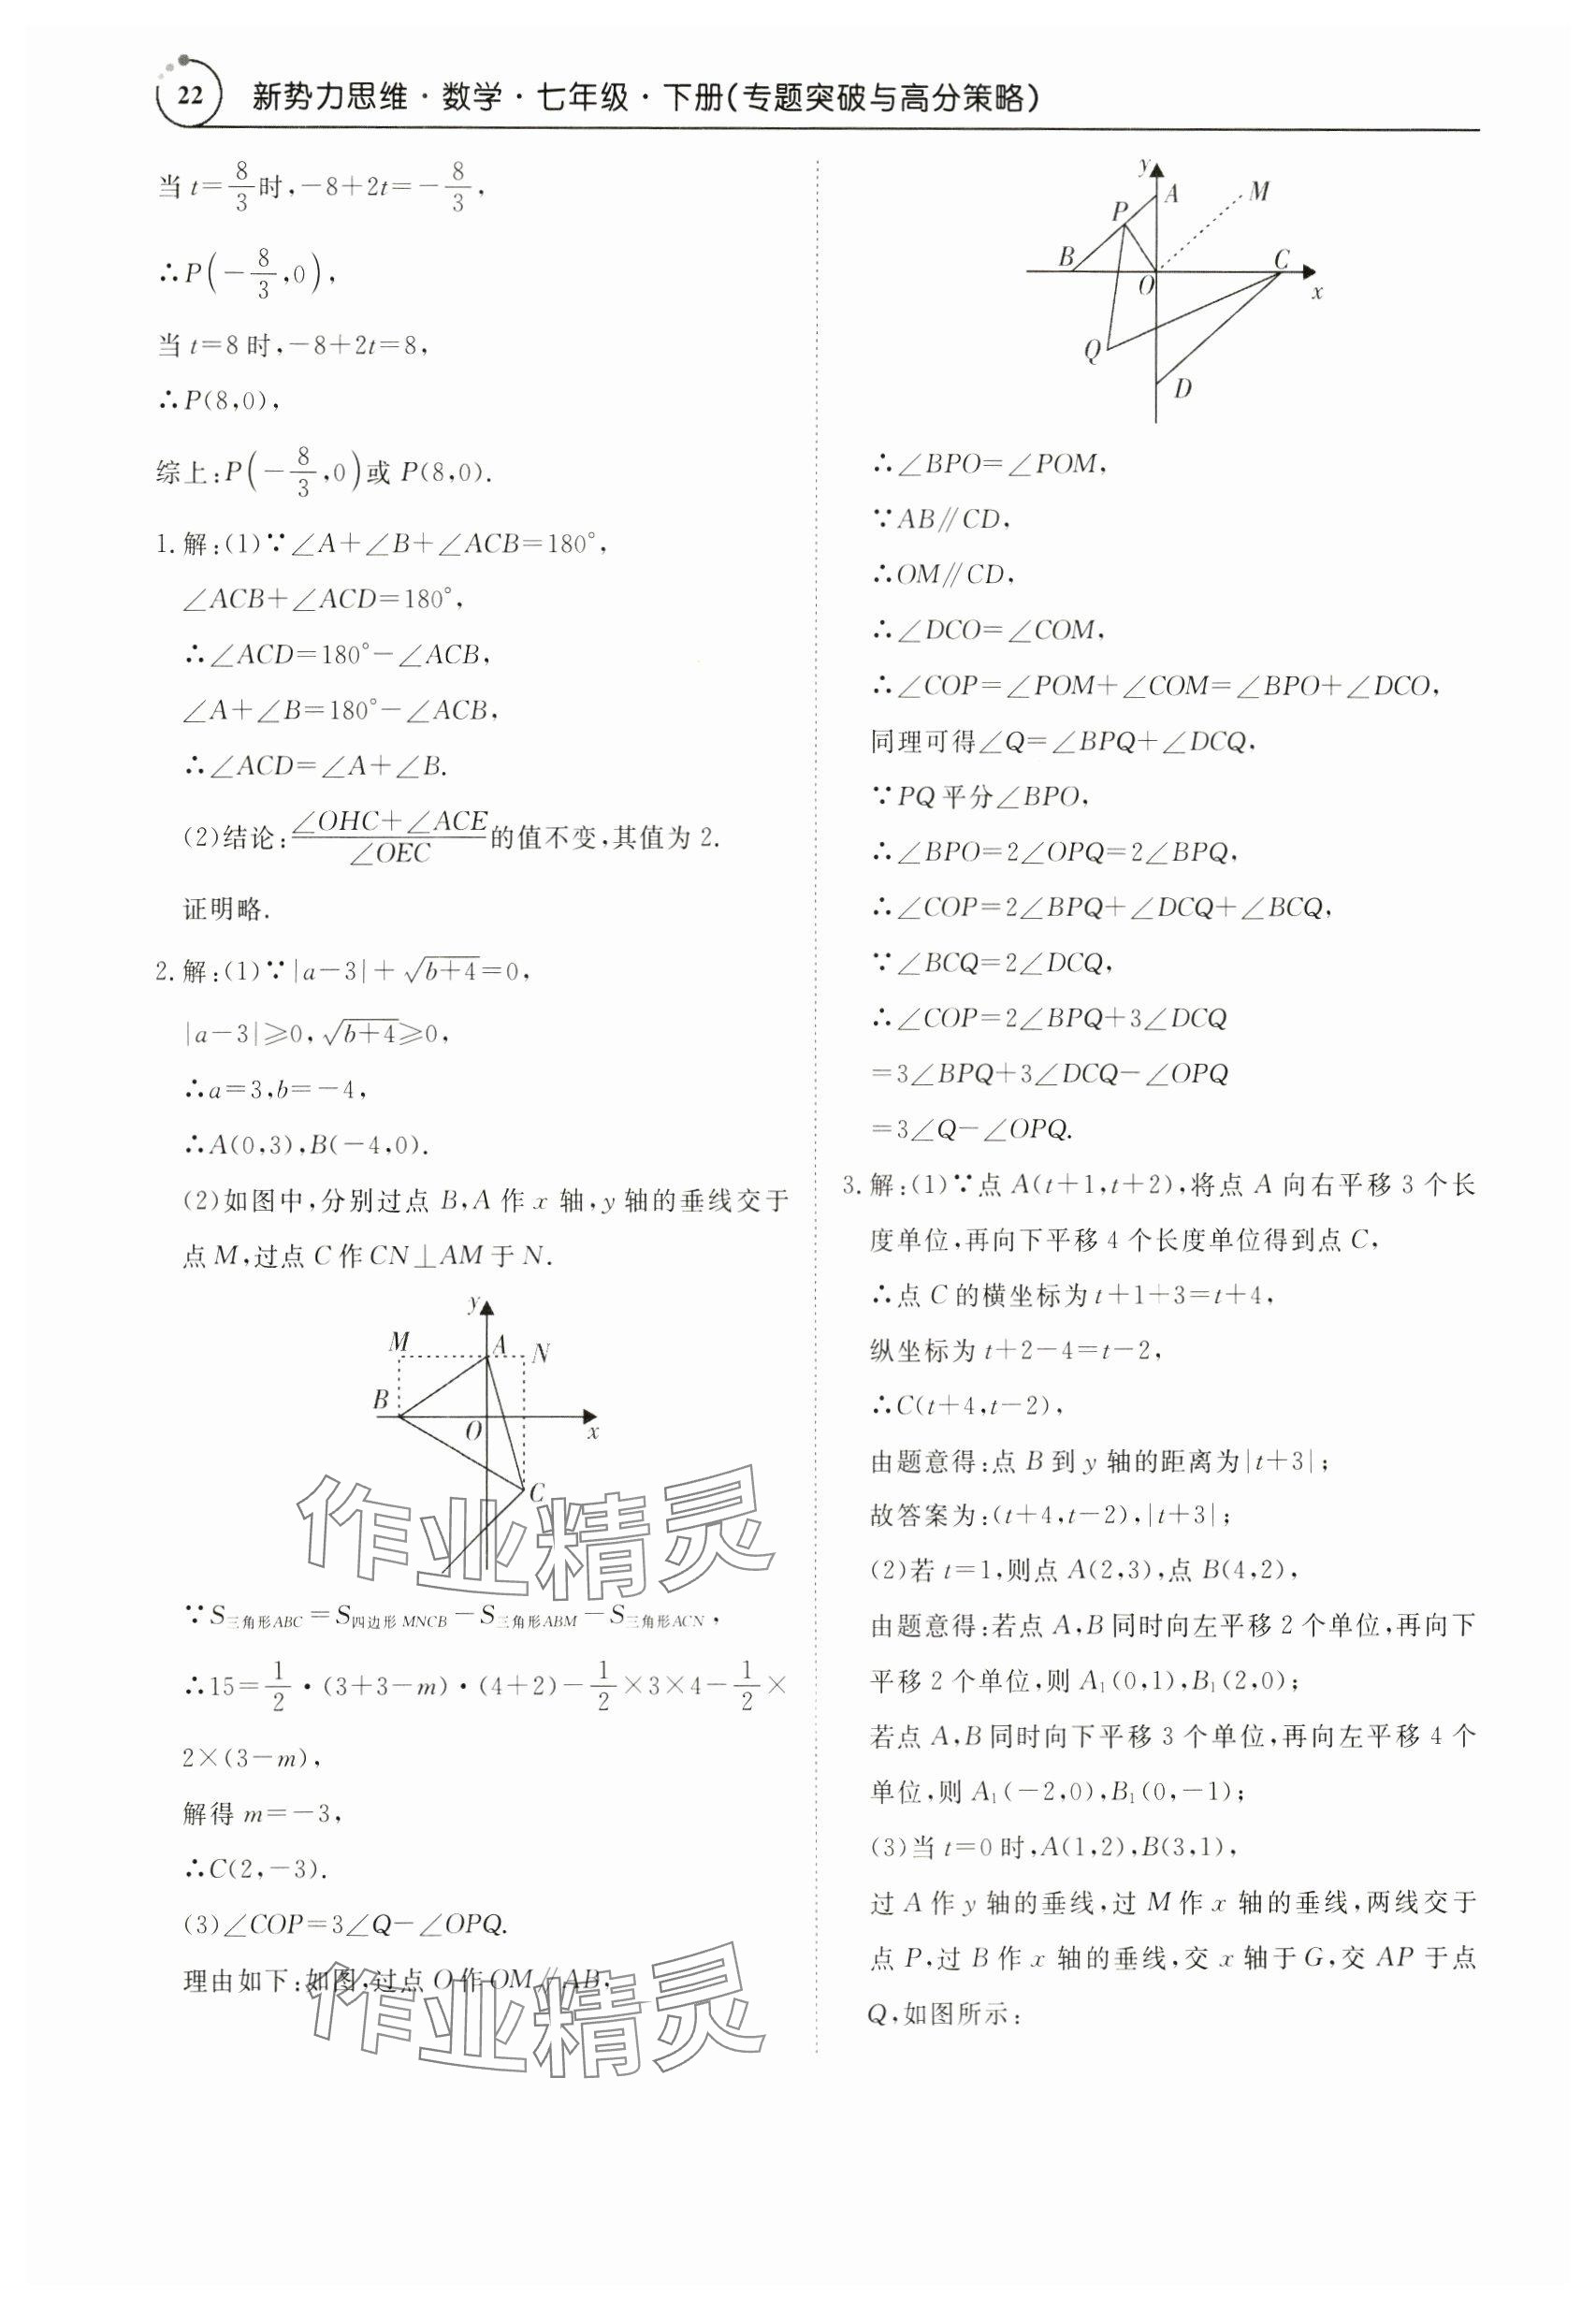 22
新势力思维·数学·七年级·下册(专题突破与高分策略)
当 t=8/3时,-8+2t=-8/3,
∴P(-8/3,0),
当 t=8 时,-8+2t=8,
∴P(8,0),
综上:P(-8/3,0)或 P(8,0).
1. 解:(1)∵∠A+∠B+∠ACB=180°,
∠ACB+∠ACD=180°,
∴∠ACD=180°-∠ACB,
∠A+∠B=180°-∠ACB,
∴∠ACD=∠A+∠B.
(2)结论:(∠OHC+∠ACE)/∠OEC的值不变,其值为 2.
证明略.
2. 解:(1)∵|a-3|+√(b+4)=0,
|a-3|≥0,√(b+4)≥0,
∴a=3,b=-4,
∴A(0,3),B(-4,0).
(2)如图中,分别过点 B,A 作 x 轴,y 轴的垂线交于
点 M,过点 C 作 CN⊥AM 于 N.
y
M A N
B
O x
C
∵S三角形ABC=S四边形MNCB-S三角形ABM-S三角形ACN,
∴15=1/2·(3+3-m)·(4+2)-1/2×3×4-1/2×
2×(3-m),
解得 m=-3,
∴C(2,-3).
(3)∠COP=3∠Q-∠OPQ.
理由如下:如图,过点 O 作 OM∥AB,
作业精灵
作业精灵
y
A M
P
B C
O x
Q
D
∴∠BPO=∠POM,
∵AB∥CD,
∴OM∥CD,
∴∠DCO=∠COM,
∴∠COP=∠POM+∠COM=∠BPO+∠DCO,
同理可得∠Q=∠BPQ+∠DCQ,
∵PQ 平分∠BPO,
∴∠BPO=2∠OPQ=2∠BPQ,
∴∠COP=2∠BPQ+∠DCQ+∠BCQ,
∵∠BCQ=2∠DCQ,
∴∠COP=2∠BPQ+3∠DCQ
=3∠BPQ+3∠DCQ-∠OPQ
=3∠Q-∠OPQ.
3. 解:(1)∵点 A(t+1,t+2),将点 A 向右平移 3 个长
度单位,再向下平移 4 个长度单位得到点 C,
∴点 C 的横坐标为 t+1+3=t+4,
纵坐标为 t+2-4=t-2,
∴C(t+4,t-2),
由题意得:点 B 到 y 轴的距离为|t+3|;
故答案为:(t+4,t-2),|t+3|;
(2)若 t=1,则点 A(2,3),点 B(4,2),
由题意得:若点 A,B 同时向左平移 2 个单位,再向下
平移 2 个单位,则 A₁(0,1),B₁(2,0);
若点 A,B 同时向下平移 3 个单位,再向左平移 4 个
单位,则 A₁(-2,0),B₁(0,-1);
(3)当 t=0 时,A(1,2),B(3,1),
过 A 作 y 轴的垂线,过 M 作 x 轴的垂线,两线交于
点 P,过 B 作 x 轴的垂线,交 x 轴于 G,交 AP 于点
Q,如图所示: